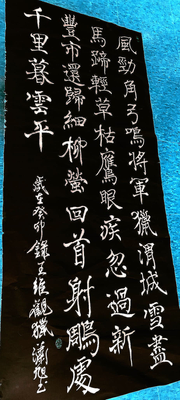 風勁角弓鳴將軍獵渭城雪盡
馬蹄輕草枯鷹眼疾忽過新
豐市還歸細柳螢回首射鵰處
千里暮雲平
歲在癸卯錄王維觀獵瀟旭书